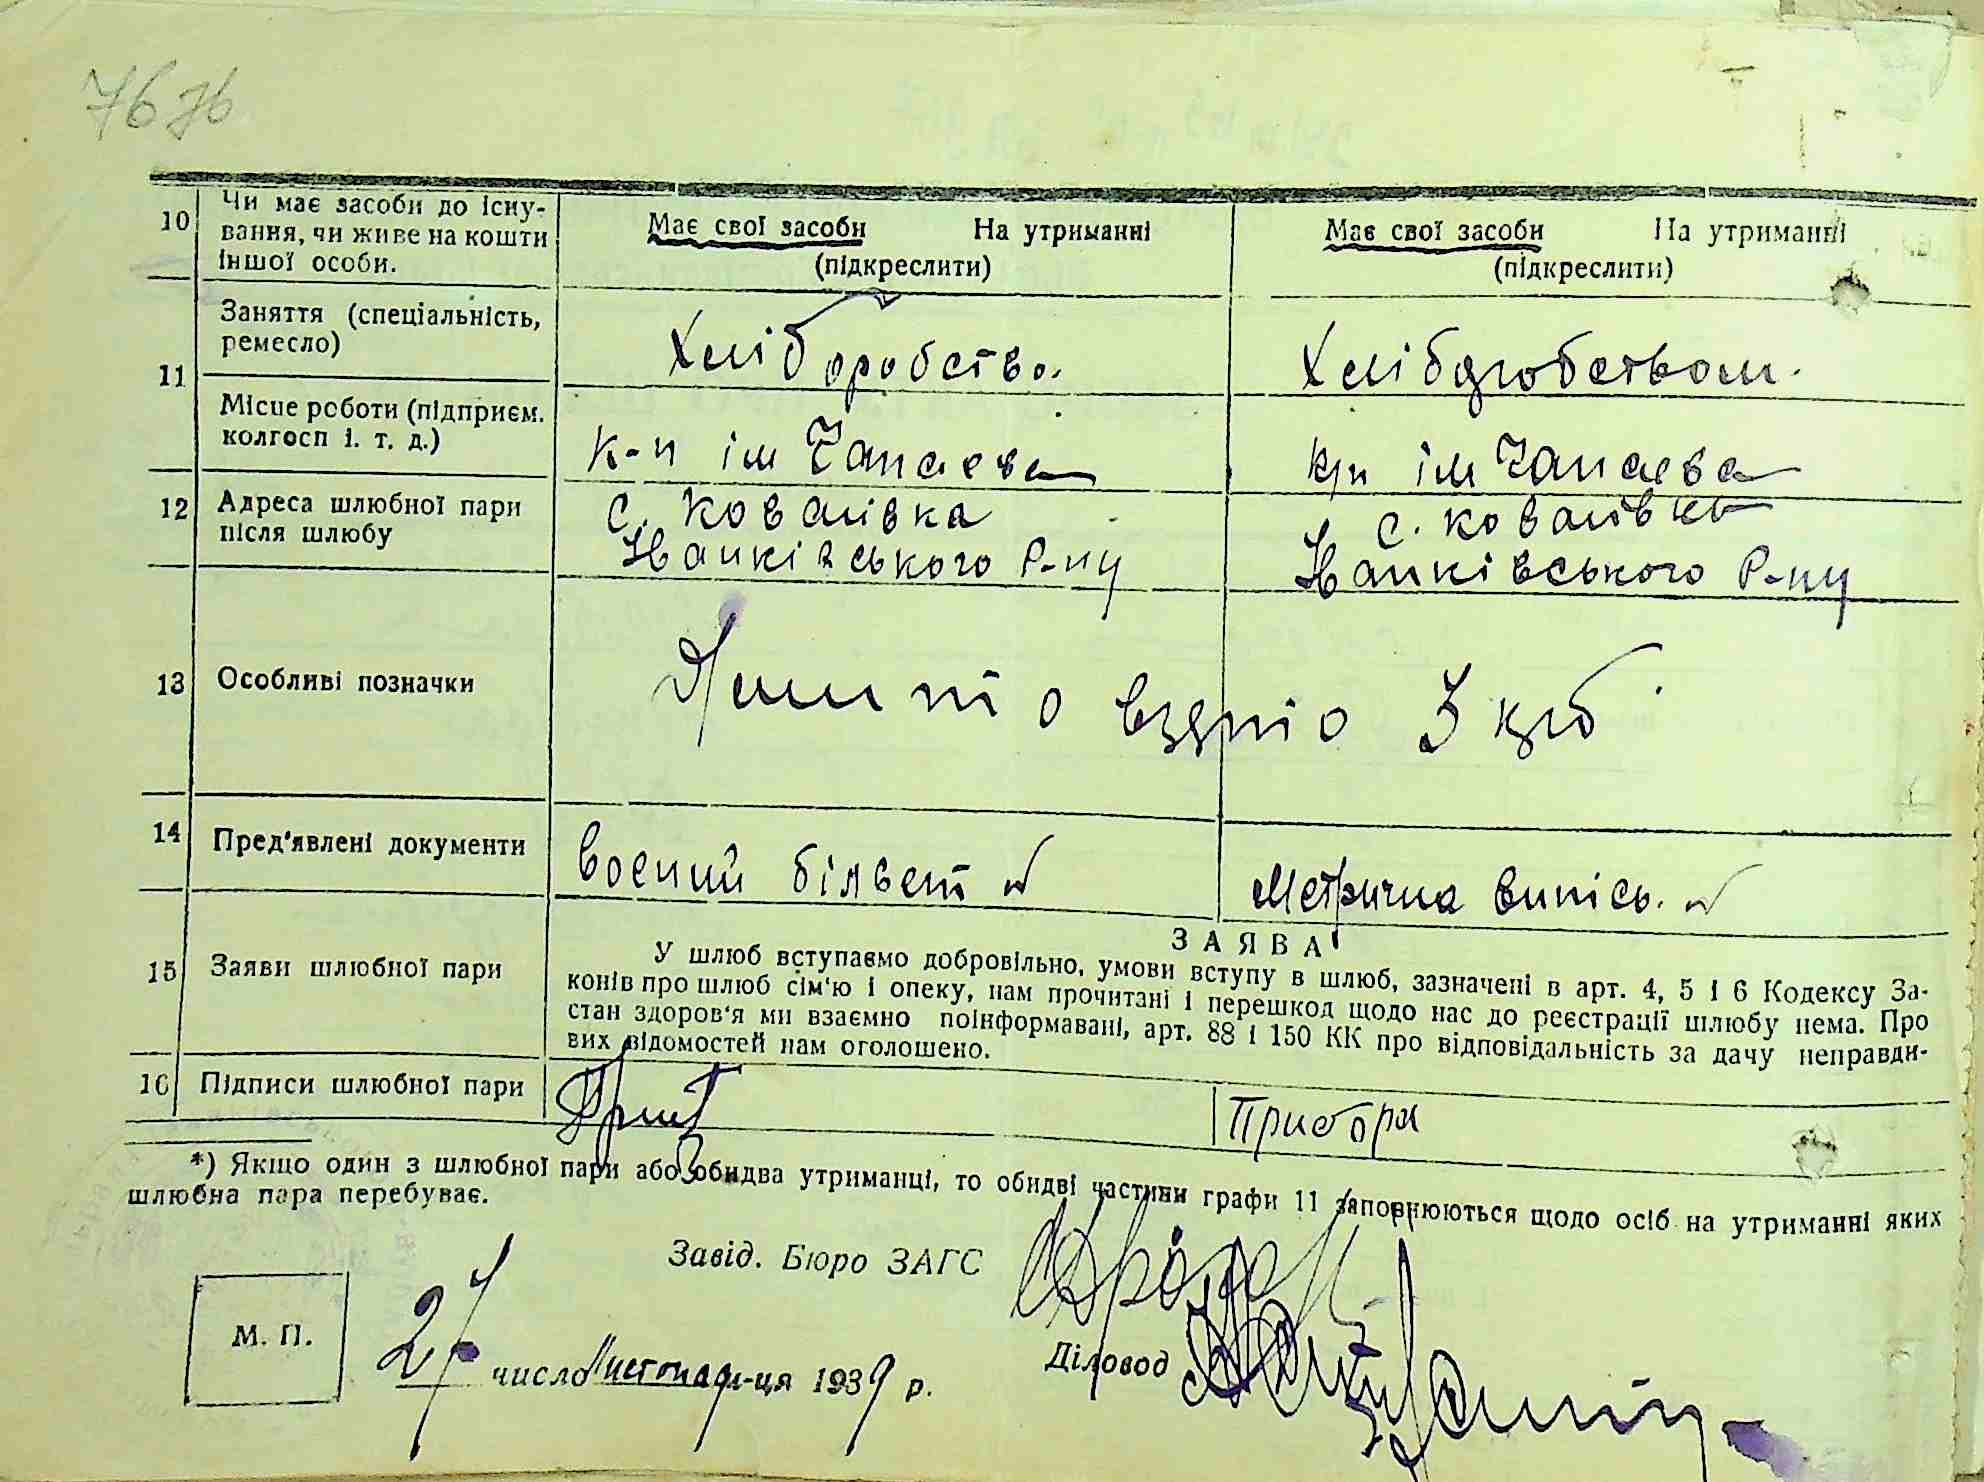 76 76
10 Чи має засоби до існу-
вання, чи живе на кошти
іншої особи.
Має свої засоби На утриманні
(підкреслити)
Має свої засоби На утриманні
(підкреслити)
11 Заняття (спеціальність,
ремесло)
Хліборобство.
Хлібдробством.
Місце роботи (підприєм.
колгосп і. т. д.)
к-п ім Чапаєва
к-п ім Чапаєва
12 Адреса шлюбної пари
після шлюбу
с. Ковалівка
Іванківського Р-ну
с. Ковалівка
Іванківського Р-ну
13 Особливі позначки
взято 3 крб
14 Пред'явлені документи
Воєний білвет
Метрична випісь.
15 Заяви шлюбної пари
ЗАЯВА
У шлюб вступаємо добровільно, умови вступу в шлюб, зазначені в арт. 4, 5 і 6 Кодексу За-
конів про шлюб сім'ю і опеку, нам прочитані і перешкод щодо нас до реєстрації шлюбу нема. Про
стан здоров'я ми взаємно поінформавані, арт. 88 і 150 КК про відповідальність за дачу неправди-
вих відомостей нам оголошено.
16 Підписи шлюбної пари
Прибора
*) Якщо один з шлюбної пари або обидва утриманці, то обидві частини графи 11 заповнюються щодо осіб на утриманні яких
шлюбна пара перебуває.
Завід. Бюро ЗАГС
М. П.
27 число Листопад м-ця 1939 р.
Діловод